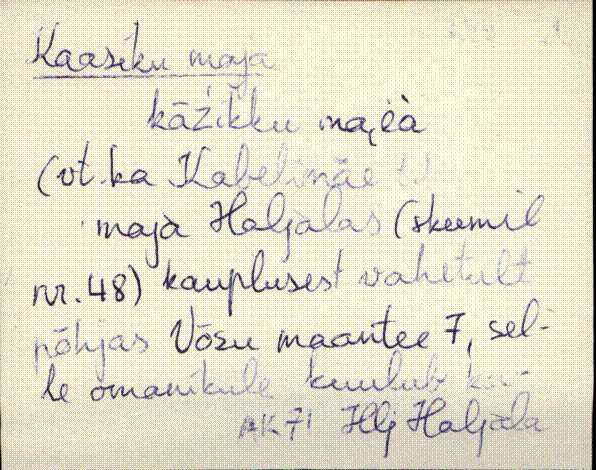 Kaasiku maja
kāžikku
(vt. ka Kabelimäe t.)
maja Haljalas (skeemil
nr. 48) kauplusest vahetult
põhjas Võsu maantee 7, sel-
le omanikule kuulub ka-
AK 71 Hlj Haljala